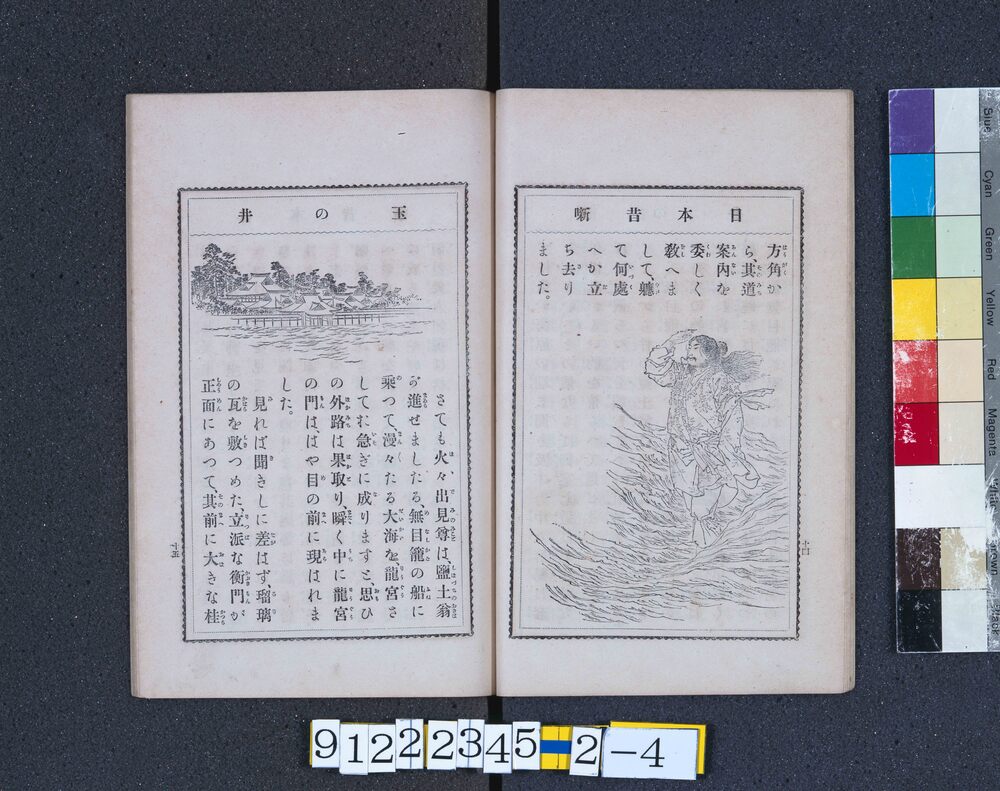 日本昔噺
方角か
ら、其道
案内を
委しく
敎へま
して、軈
て何處
へか立
ち去り
ました。
玉の井
さても火々出見尊は、鹽土翁
が進せましたる、無目籠の船に
乘つて、漫々たる大海を、龍宮さ
してお急ぎに成りますと、思ひ
の外路は果取り、瞬く中に龍宮
の門は、はや目の前に現はれま
した。
見れば聞きしに差はず、瑠璃
の瓦を敷つめた、立派な衡門が
正面にあつて、其前に大きな桂
9122345-2-4
Cyan
Green
Yellow
Red
Magenta